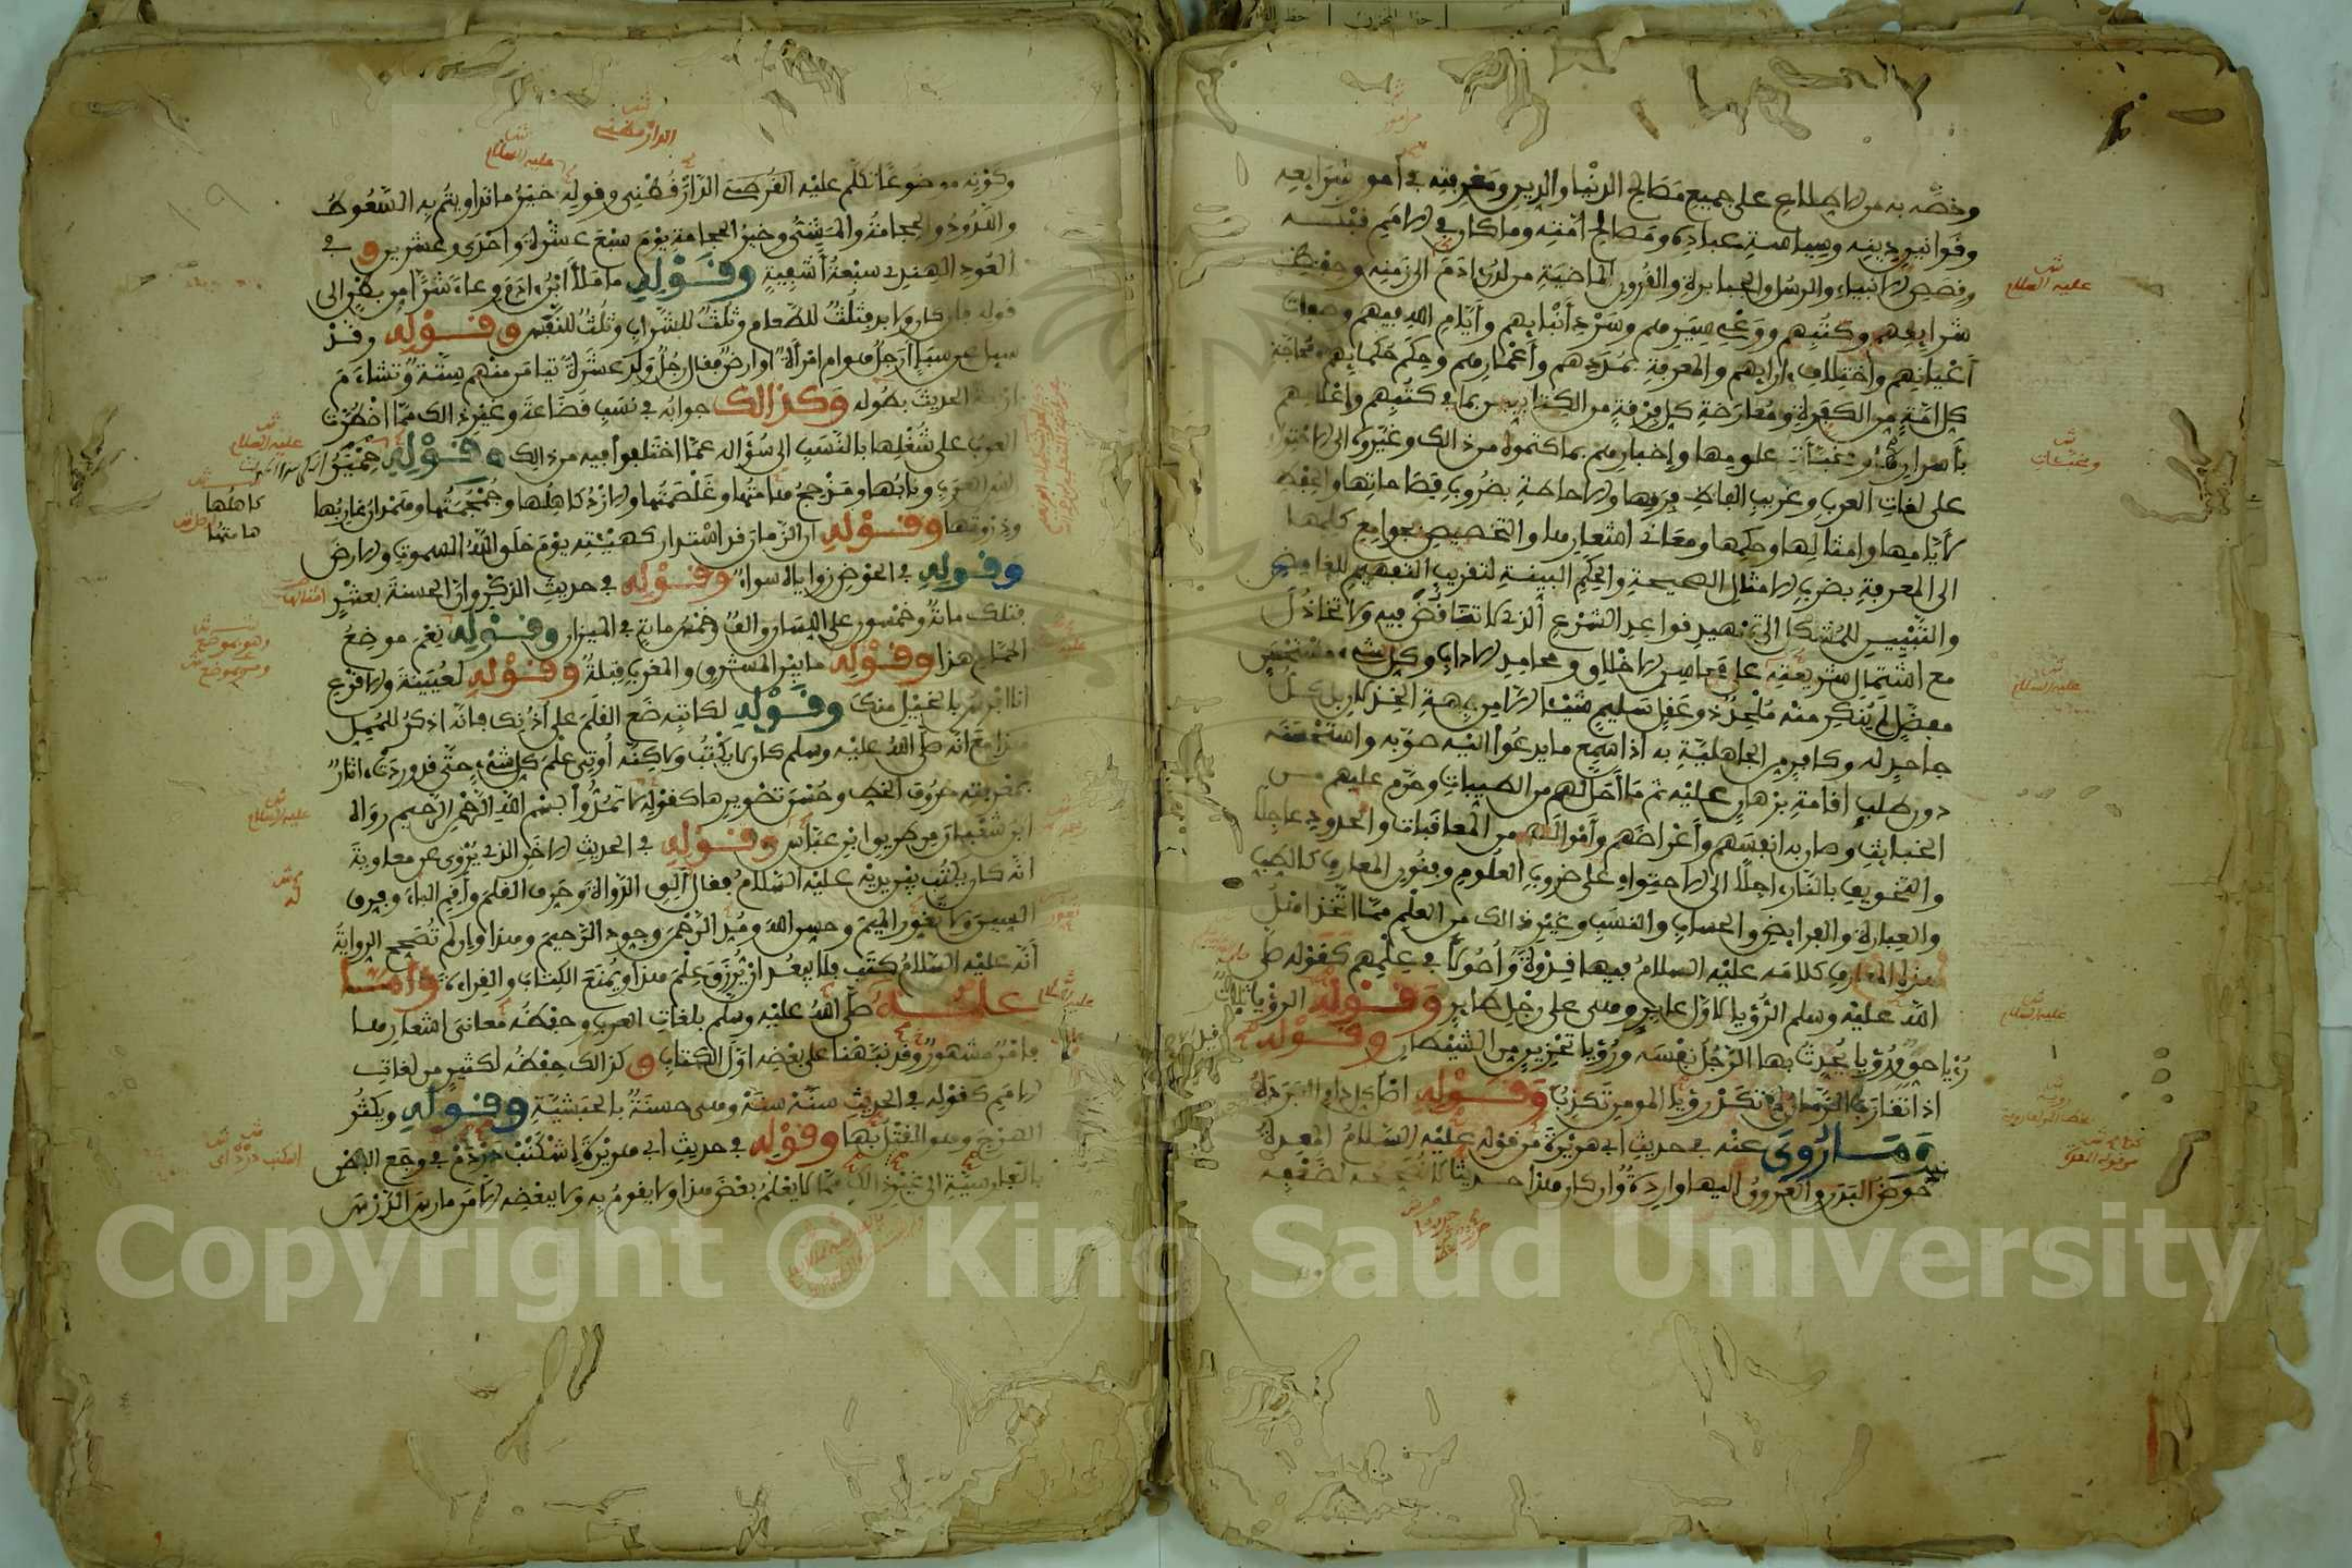 وخصه به من الاطلاع على جميع مصالح الدنيا والدين ومعرفته بأمور شرايعه
وقوانين دينه وسياسة عباده ومصالح امته وما كان في الامم قبله
وقصص الانبياء والرسل والجبابرة والقرون الماضية من لدن ادم الى زمنه وحفظ
شرايعهم وكتبهم ووعي سيرهم وسرد أنبايهم وأيام الله فيهم وصفات
أعيانهم واختلاف ءارايهم والمعرفة بمددهم وأعمارهم وحكم حكمايهم ومحاجة
كل امة من الكفرة ومعارضة كل فرقة من الكتابيين بما في كتبهم واعلامهم
بأسرارها ومخبآت علومها وإخبارهم بما كتموه من ذالك وغيروه الى الاحتواء
على لغات العرب وغريب الفاظ فرقها والاحاطة بضروب فصاحاتها والحفظ
لأيامها وامثالها وحكمها ومعاني اشعارها والتخصيص بجوامع كلمها
الى المعرفة بضرب الامثال الصحيحة والحكم البينة لتقريب التفهيم للغامض
والتبيين للمشكل الى تمهيد قواعد الشرع الذي لا تناقض فيه ولا تخاذل
مع اشتمال شريعته على محاسن الاخلاق ومحامد الاداب وكل شيء مستحسن
مفضل لم ينكر منه ملحد ذو عقل سليم شيئا الا من جهة الخذلان بل كل
جاحد له وكافر من الجاهلية به اذا سمع ما يدعوا اليه صوبه واستحسنه
دون طلب اقامة برهان عليه ثم ما أحل لهم من الطيبات وحرم عليهم من
الخبايث وصان به انفسهم وأعراضهم وأموالهم من المعاقبات والحدود عاجلا
والتخويف بالنار ءاجلا الى الاحتواء على ضروب العلوم وفنون المعارف كالطب
والعبارة والفرايض والحساب والنسب وغير ذالك من العلم مما اتخذ اهل
هذه المعارف كلامه عليه السلام فيها قدوة وأصولا في علمهم كقوله صلى
الله عليه وسلم الرؤيا لاول عابر وهي على رجل طاير وقوله الرؤيا ثلاث
رؤيا حق ورؤيا يحدث بها الرجل نفسه ورؤيا تحزين من الشيطان وقوله
اذا تقارب الزمان لم تكد رؤيا المومن تكذب وقوله اصل كل داء البردة
وما روي عنه في حديث ابي هريرة من قوله عليه السلام المعدة
حوض البدن والعروق اليها واردة وان كان هذا حديثا لا نصححه لضعفه
وكونه موضوعا تكلم عليه القرصي الدارقطني وقوله خير ما تداويتم به السعوط
واللدود والحجامة والمشي وخير الحجامة يوم سبع عشرة واحدى وعشرين وفي
العود الهندي سبعة أشفية وقوله ما ملأ ابن ءادم وعاء شرا من بطن الى
قوله فان كان ولا بد فثلث للطعام وثلث للشراب وثلث للنفس وقوله وقد
سيل عن سبإ أرجل هو ام امرأة او ارض فقال رجل ولد عشرة تيامن منهم ستة وتشاءم
اربعة الحديث بطوله وكذالك جوابه في نسب قضاعة وغير ذالك مما اضطرت
العرب على شغلها بالنسب الى سؤاله عما اختلفوا فيه من ذالك وقوله حمير
العرب ونابها ومذحج هامتها وغلصمتها والازد كاهلها وجمجمتها وهمدان غاربها
وذروتها وقوله ان الزمان قد استدار كهيئته يوم خلق الله السموت والارض
وقوله في الحوض زواياه سواء وقوله في حديث الذكر وان الحسنة بعشر
فتلك ماية وخمسون على اللسان والف وخمس ماية في الميزان وقوله نعم موضع
الحمام هذا وقوله ما بين المشرق والمغرب قبلة وقوله لعيينة والاقرع
انا افرس بالخيل منك وقوله لكاتبه ضع القلم على اذنك فانه اذكر للممل
هذا مع انه صلى الله عليه وسلم كان لا يكتب ولاكنه أوتي علم كل شيء حتى قد وردت ءاثار
بمعرفته حروف الخط وحسن تصويرها كقوله لا تمدوا بسم الله الرحمن الرحيم رواه
ابن شعبان من طريق ابن عباس وقوله في الحديث الاخر الذي يروى عن معاوية
انه كان يكتب بين يديه عليه السلام فقال ألق الدواة وحرف القلم وأقم الباء وفرق
السين ولا تعور الميم وحسن الله ومد الرحمن وجود الرحيم وهذا وان لم تصح الرواية
أنه عليه السلام كتب فلا يبعد ان يرزق علم هذا ويمنع الكتاب والقراءة وأما
علمه صلى الله عليه وسلم بلغات العرب وحفظه معاني اشعارها
فامر مشهور وقد نبهنا على بعضه اول الكتاب وكذالك حفظه لكثير من لغات
الامم كقوله في الحديث سنه سنه وهي حسنة بالحبشية وقوله ويكثر
الهرج وهو القتل بها وقوله في حديث ابي هريرة إشكنب دردم في وجع البطن
بالفارسية الى غير ذالك مما لا يعلم بعض هذا ولا يقوم به ولا ببعضه الا من مارس الدرس
عليه السلام
الدارقطني
عليه السلام
كاهلها
هامتها
عليه السلام
عليه السلام
عليه السلام